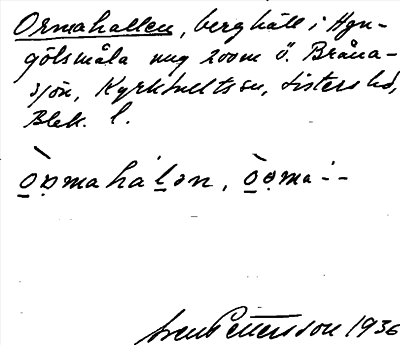 Ormahallen, berghäll i Hyn-
götsmåla mg 200 m ö. Bråna-
sjön, Kyrkhults sn, Listers hd,
Blek. l.
òrmahálɘn, òrma--
Sven Pettersson 1936